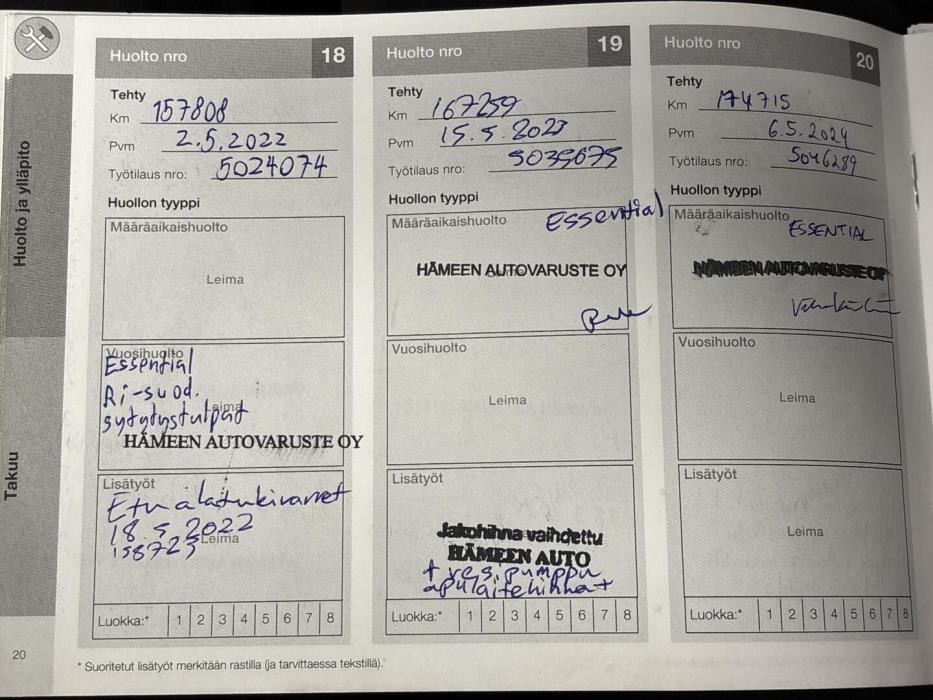 Huolto ja ylläpito
Takuu
Huolto nro 18
Tehty
Km 157808
Pvm 2.5.2022
Työtilaus nro: 5024074
Huollon tyyppi
Määräaikaishuolto
Leima
Vuosihuolto
Essential
Ri-suod.
Leima
sytytystulpat
HÄMEEN AUTOVARUSTE OY
Lisätyöt
Etu alatukivarret
18.5.2022
Leima
158723
Luokka:* 1 2 3 4 5 6 7 8
Huolto nro 19
Tehty
Km 167259
Pvm 15.5.2023
Työtilaus nro: 5035675
Huollon tyyppi
Määräaikaishuolto
Essential
HÄMEEN AUTOVARUSTE OY
Vuosihuolto
Leima
Lisätyöt
Jakohihna vaihdettu
HÄMEEN AUTO
+ ves.pumppu
apulaitehihna+
Luokka:* 1 2 3 4 5 6 7 8
Huolto nro 20
Tehty
Km 174715
Pvm 6.5.2024
Työtilaus nro: 5046289
Huollon tyyppi
Määräaikaishuolto
ESSENTIAL
HÄMEEN AUTOVARUSTE OY
Vuosihuolto
Leima
Lisätyöt
Leima
Luokka:* 1 2 3 4 5 6 7 8
20
* Suoritetut lisätyöt merkitään rastilla (ja tarvittaessa tekstillä).